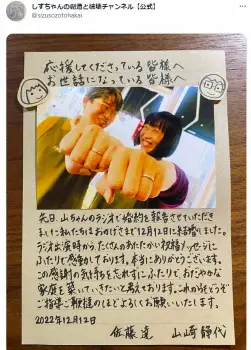 しずちゃんの創造と破壊チャンネル【公式】
@sizusozotohakai
応援してくださっている皆様へ
お世話になっている皆様へ
先日、山ちゃんのラジオで婚約を報告させていただき
ました私たちはおかげさまで12月12日に結婚しました。
ラジオ出演時から、たくさんのあたたかい祝福メッセージに
ふたりで感動しております。本当にありがとうございます。
この感謝の気持ちを忘れずに、ふたりで、おだやかな
家庭を築いていきたいと思えております。これからもどうぞ
ご指導ご鞭撻のほどよろしくお願いいたします。
2022年12月12日
佐藤達 山崎静代